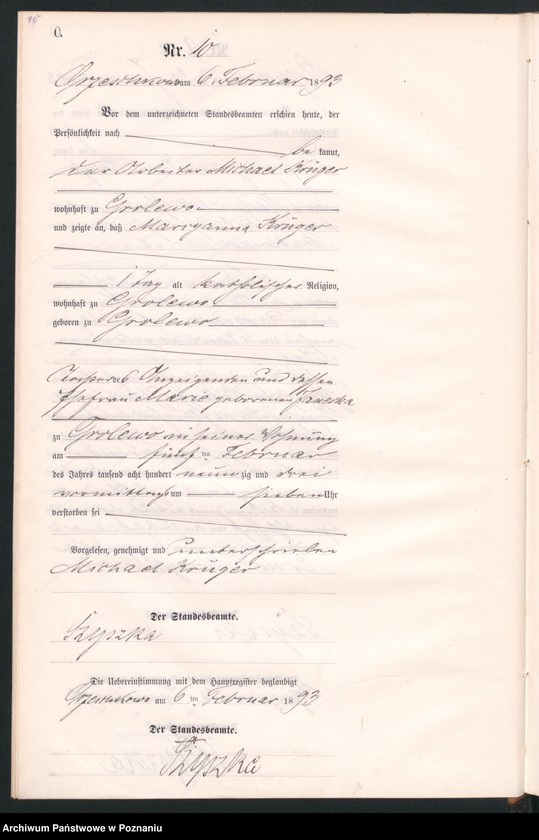 10
C.
Nr. 10
Orzeschkowo am 6. Februar 1893
Vor dem unterzeichneten Standesbeamten erschien heute, der
Persönlichkeit nach
be kannt,
der Arbeiter Michael Krüger
wohnhaft zu Grolewo
und zeigte an, daß Maryanna Krüger
1 Tag alt katholischer Religion,
wohnhaft zu Grolewo
geboren zu Grolewo
Tochter des Anzeigenden und dessen
Ehefrau Marie geborenen
zu Grolewo in seiner Wohnung
am fünften Februar
des Jahres tausend acht hundert neunzig und drei
vormittags um sieben Uhr
verstorben sei
Vorgelesen, genehmigt und unterschrieben
Michael Krüger
Der Standesbeamte.
Szyszka
Die Uebereinstimmung mit dem Hauptregister beglaubigt
Orzeschkowo am 6ten Februar 1893
Der Standesbeamte.
Szyszka
Archiwum Państwowe w Poznaniu